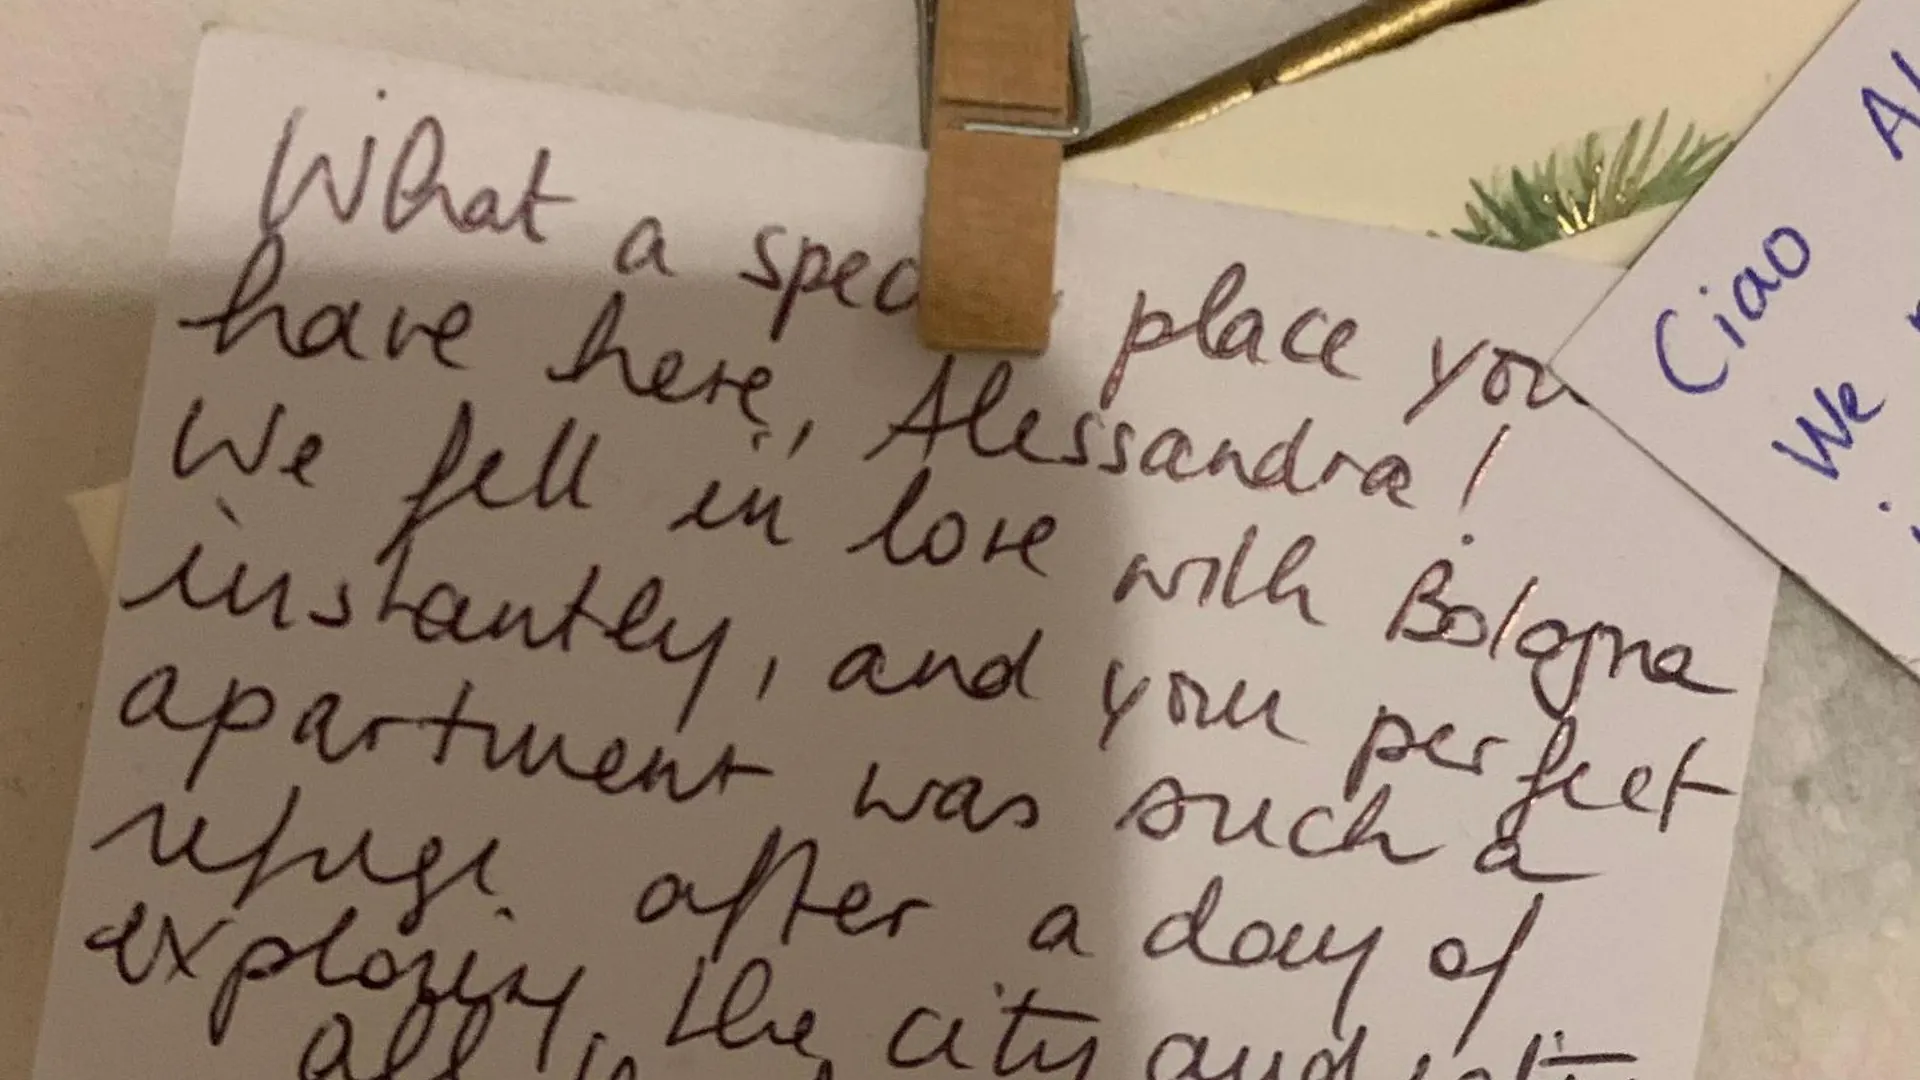 What a spec place you
have here, Alessandra!
We fell in love with Bologna
instantly, and your perfect
apartment was such a
refuge after a day of
exploring the city and
all
Ciao
We